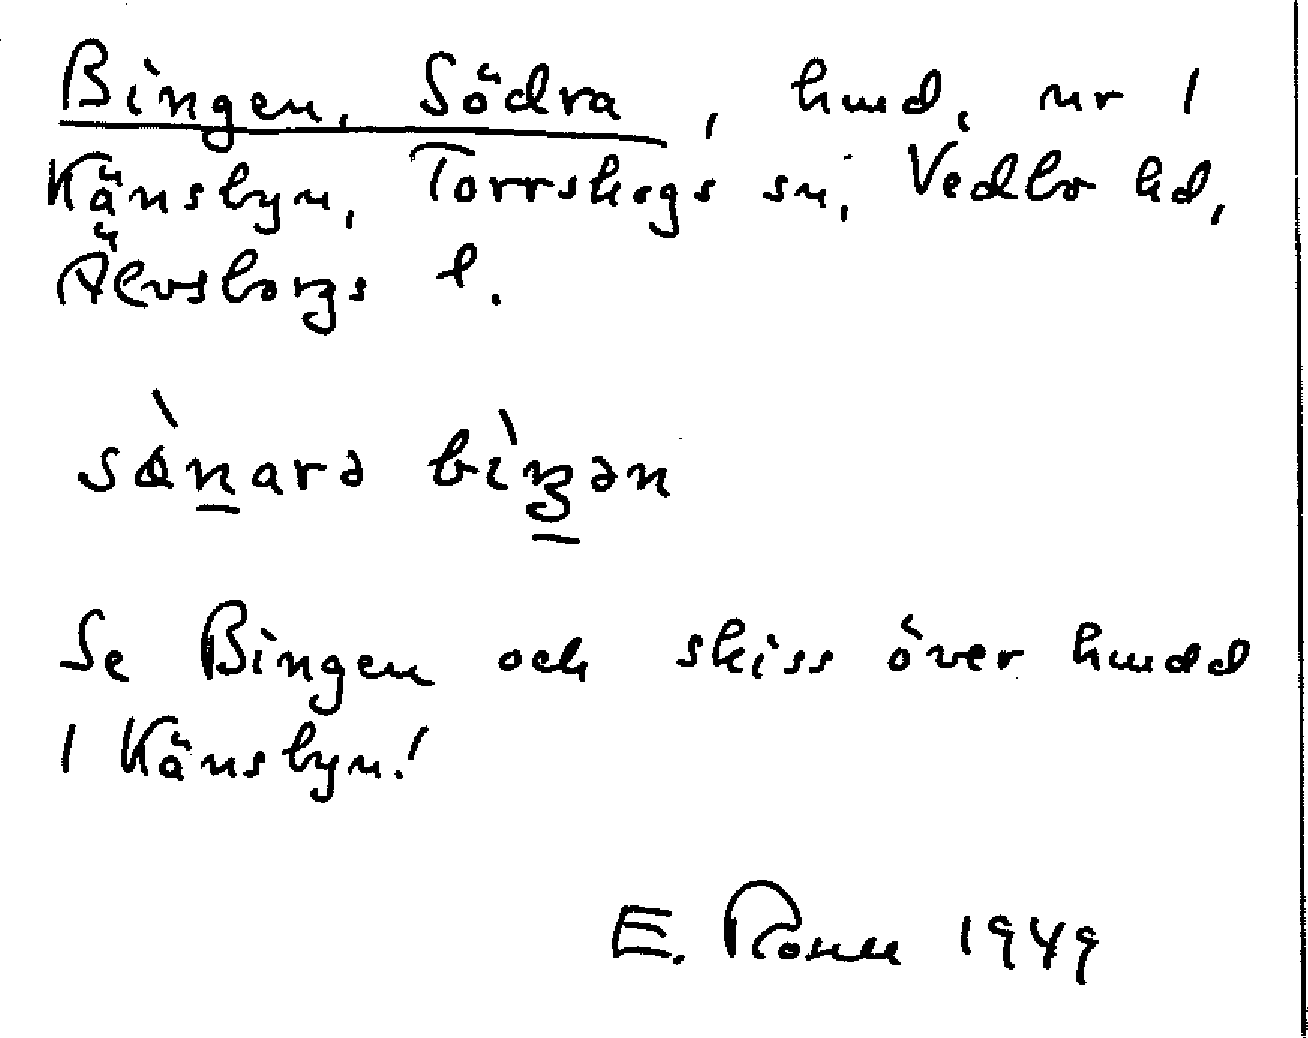 Bingen, Södra, hmd, nr 1
Känsbyn, Torrskogs sn, Vedbo hd,
Älvsborgs l.
sànarə bìŋən
Se Bingen och skiss över hmdd
1 Känsbyn!
E. 1949